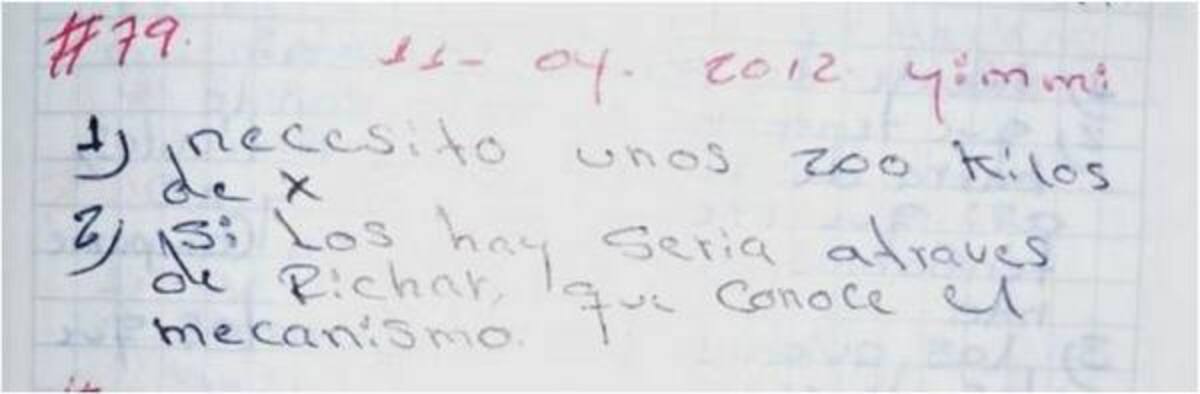 #79.
11- 04. 2012 yimmi
1) necesito unos 200 kilos
de x
2) si los hay seria atraves
de Richar, que conoce el
mecanismo.